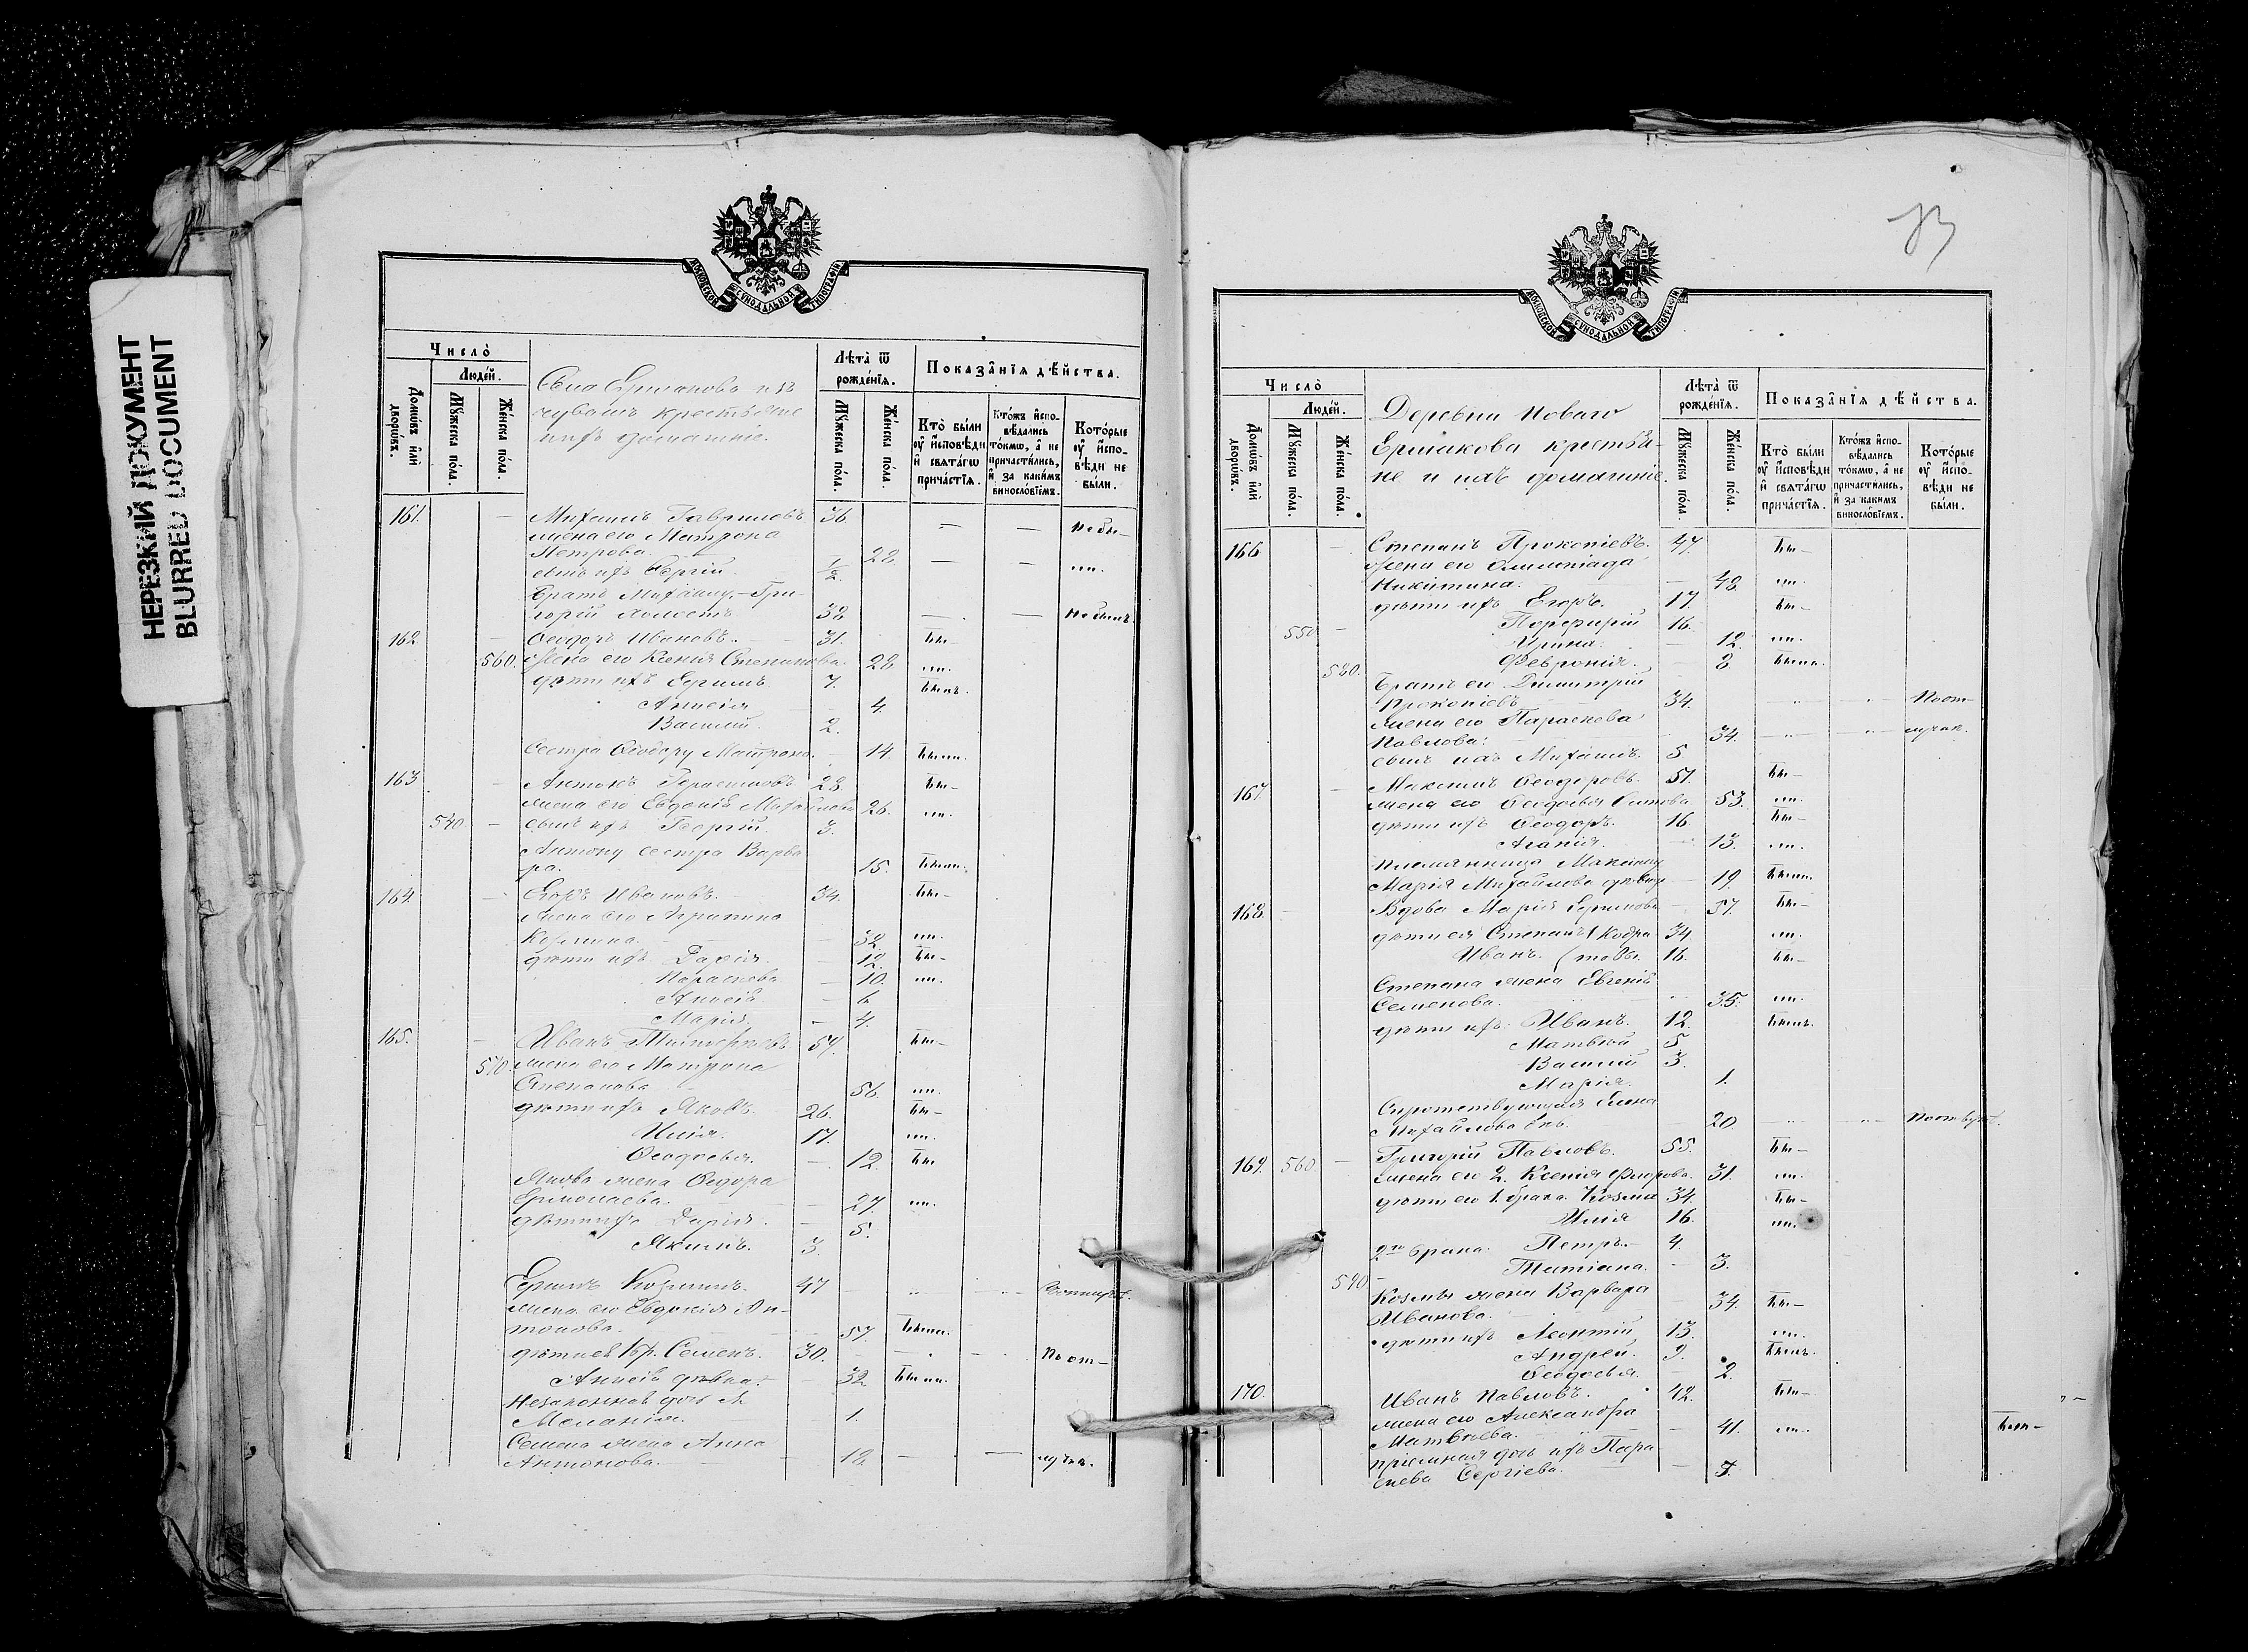 НЕРЕЗКИЙ ДОКУМЕНТ
BLURRED DOCUMENT
МОСКОВСКОЙ СѴНОДАЛЬНОЙ ТИПОГРАФІИ
Число̀
Люде́й.
Домѡ́въ и҆лѝ дворѡ́въ.
Мꙋ́жеска по́ла.
Же́нска по́ла.
Села Ермакова изъ
чувашъ крестьяне
ихъ домашніе.
Лѣта̀ ѿ рожде́нїѧ.
Мꙋ́жеска по́ла.
Же́нска по́ла.
Показа̑нїѧ дѣ́йства.
Кто̀ бы́ли оу҆ и҆́сповѣди и҆ свѧта́гѡ прича́стїѧ.
Кто́жъ и҆спо-вѣ́дались то́кмѡ, а҆ не причасти́лись, и҆ за каки́мъ винослѡ́вїемъ.
Кото́рые оу҆ и҆́спо-вѣди не бы́ли.
161. Михаилъ Гавриловъ 36 — — не бы—
жена его Матрона
Петрова. 28 — —
сынъ ихъ Сергій 1/2
Братъ Михаилу Гри-
горій холостъ 38 — — не былъ
162. Ѳеодоръ Ивановъ. 31. бы—
560. Жена его Ксенія Степанова. 28
дѣти ихъ Ефимъ 7. былъ.
Анисія 4.
Василій. 2.
Сестра Ѳеодору Матрона. 14. была.
163 Антонъ Герасимовъ 28. бы—
жена его Евдокія Михайлова 26.
540 сынъ ихъ Георгій 3.
Антону сестра Варва-
ра. 15. была.
164. Егоръ Ивановъ. 34. бы—
Жена его Агрипина
Козмина. 32.
дѣти ихъ Дарія. 12. бы—
Параскева 10.
Анисія 6
Марія. 4.
165. Иванъ Тимофеевъ 57. бы—
570. жена его Матрона
Степанова 56.
дѣти ихъ Яковъ. 26. бы—
Илія. 17.
Ѳеодосья. 12. бы
Якова жена Ѳедора
Ермолаева. 27.
дѣти ихъ Дарія. 5.
Якимъ. 3.
Ефимъ Козминъ. 47
жена его Евдокія Ан-
тонова. 57. была.
дѣти ея 1 бр. Семенъ. 30. По от—
Анисія дѣвка. 32 была.
Незаконная дочь А
Меланія. 1.
Семена жена Анна
Антонова. 18.
73
МОСКОВСКОЙ СѴНОДАЛЬНОЙ ТИПОГРАФІИ
Число̀
Люде́й.
Домѡ́въ и҆лѝ дворѡ́въ.
Мꙋ́жеска по́ла.
Же́нска по́ла.
Деревни Новаго
Ермакова крестья-
не и ихъ домашніе.
Лѣта̀ ѿ рожде́нїѧ.
Мꙋ́жеска по́ла.
Же́нска по́ла.
Показа̑нїѧ дѣ́йства.
Кто̀ бы́ли оу҆ и҆́сповѣди и҆ свѧта́гѡ прича́стїѧ.
Кто́жъ и҆спо-вѣ́дались то́кмѡ, а҆ не причасти́лись, и҆ за каки́мъ винослѡ́вїемъ.
Кото́рые оу҆ и҆́спо-вѣди не бы́ли.
166 Степанъ Прокопіевъ. 47. бы—
Жена его Олимпіада
Никитина. 48
дѣти ихъ Егоръ. 17. бы—
550 Порфирій 16.
Ирина. 12.
580. Февронія. 8 была.
Братъ его Димитрій
Прокопіевъ 34. По от—
жена его Параскева
Павлова. 34.
сынъ ихъ Михаилъ. 5
167. Максимъ Ѳеодоровъ. 51. бы—
жена его Ѳеодосья 53.
дѣти ихъ Ѳеодоръ. 16. бы—
Агапія. 13.
племянница Максиму
Марія Михайлова дѣвица 19. была.
168. Вдова Марія Ефимова 57. бы—
дѣти ея Степанъ 34.
Иванъ. 16. бы—
Степана жена Евгенія
Семенова. 35.
дѣти ихъ Иванъ. 12. былъ.
Матвѣй 5
Василій 3.
Марія. 1.
Сиротствующая Елена
Михайлова 20.
169. 560 Григорій Павловъ. 55. бы—
жена его 2. Ксенія Флорова. 31.
дѣти его 1. брака Козма 34. бы—
Илія 16.
2го брака. Петръ. 4.
Татіана. 3.
590 Козмы жена Варвара
Иванова. 34. бы—
дѣти ихъ Леонтій 13.
Андрей. 9. былъ.
Ѳеодосья. 2.
170. Иванъ Павловъ. 42. бы—
жена его Александра
Матвѣева. 41.
пріемная дочь ихъ Пара-
скева Сергіева. 7.